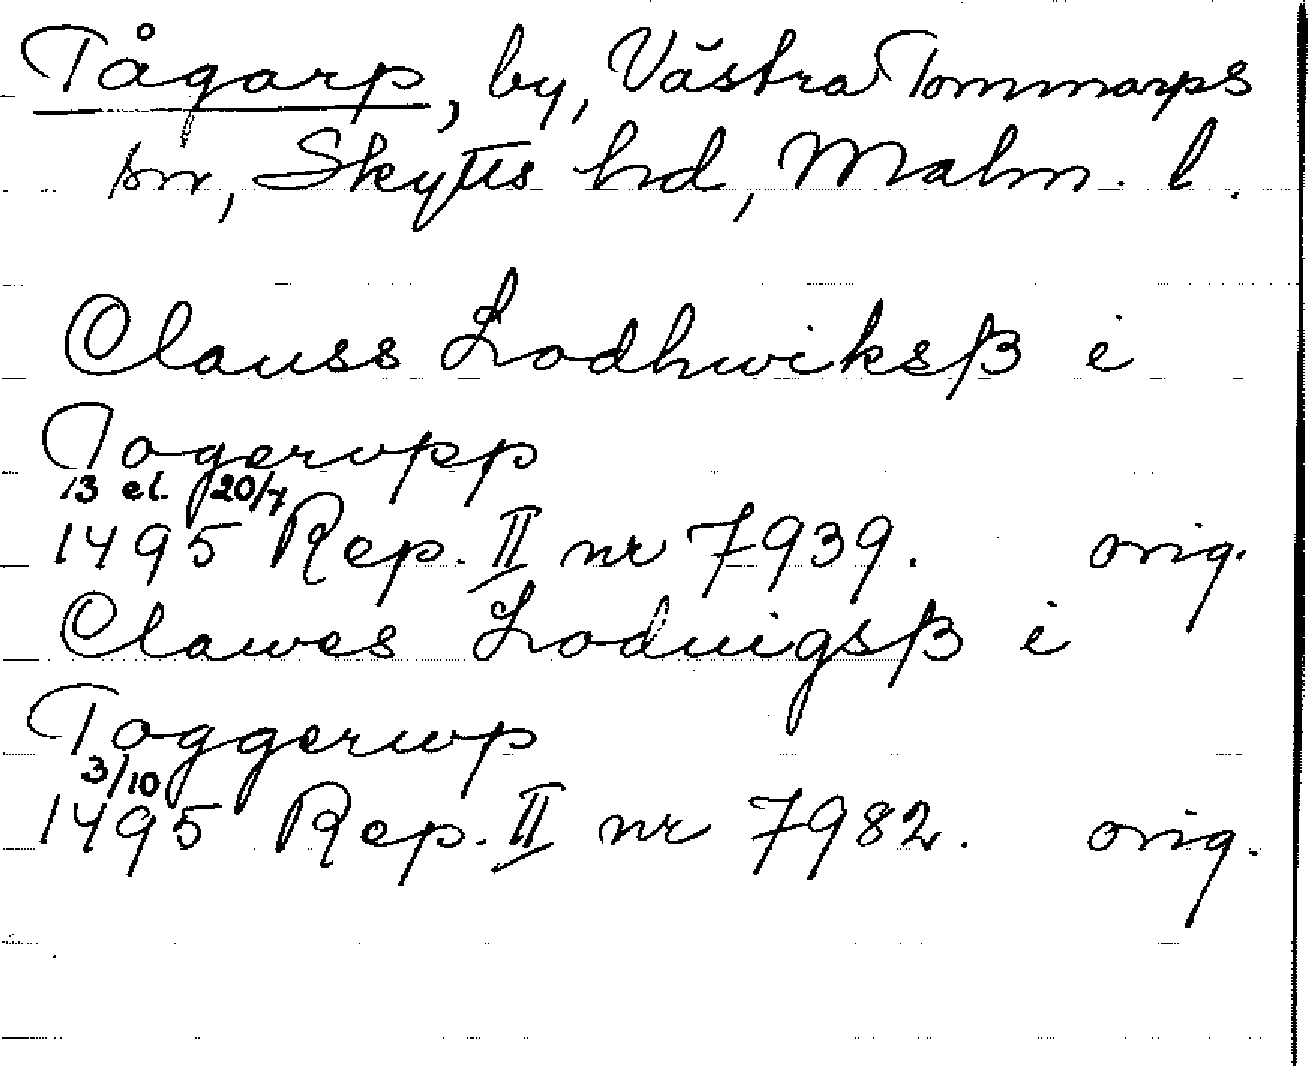 Tågarp, by, Västra Tommarps
sn, Skytts hd, Malm. l.
Clauss Lodhwiksß i
Togerupp
13 el. 20/7
1495 Rep. II nr 7939. orig.
Clawes Loduigsß i
Toggerwp
3/10
1495 Rep. II nr 7982. orig.